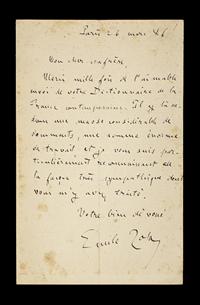 Paris 26 mars 86
Mon cher confrère,
Merci mille fois de l'aimable
envoi de votre Dictionnaire de la
France contemporaine. Il y a là de-
dans une masse considérable de
documents, une somme énorme
de travail et je vous suis par-
ticulièrement reconnaissant de
la façon très sympathique dont
vous m'y avez traité.
Votre bien dévoué
Emile Zola